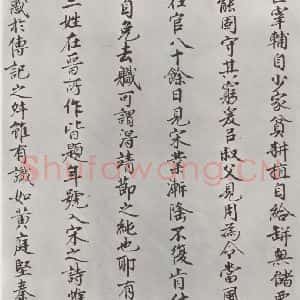 宰輔自少家貧耕亩自給缾無儲
能固守其窮爰呂叔父見用為令當風
在官八十餘日見宋業漸隆不復肯仕
自免去職可謂淂靖節之純也耶有
二姓在晉所作皆題年號入宋之詩惟
於傳記之舛雖有識如黃庭堅秦
Shufawang.CN